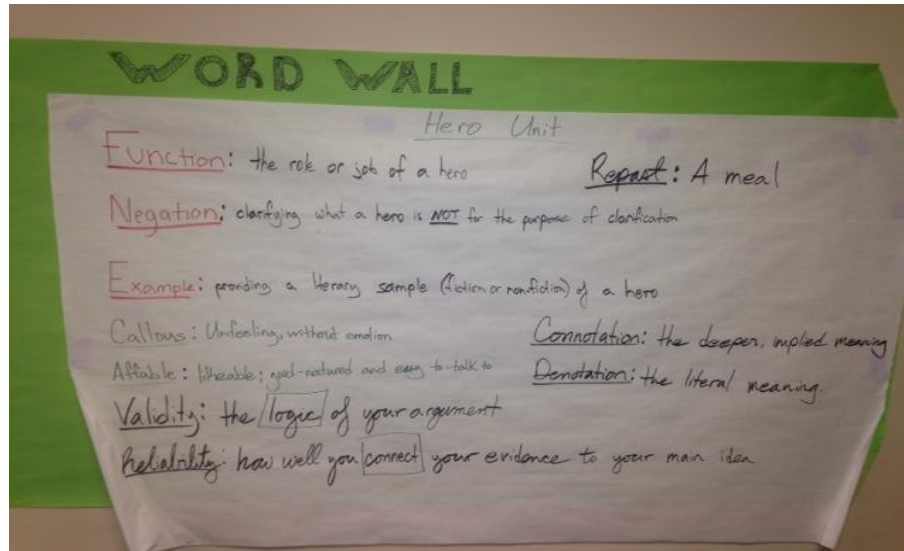 WORD WALL
Hero Unit
Function: the role or job of a hero
Repast: A meal
Negation: clarifying what a hero is NOT for the purpose of clarification
Example: providing a literary sample (fiction or nonfiction) of a hero
Callous: Unfeeling, without emotion
Connotation: the deeper, implied meaning
Affable: likeable; good-natured and easy-to-talk to
Denotation: the literal meaning.
Validity: the logic of your argument
Reliability: how well you connect your evidence to your main idea